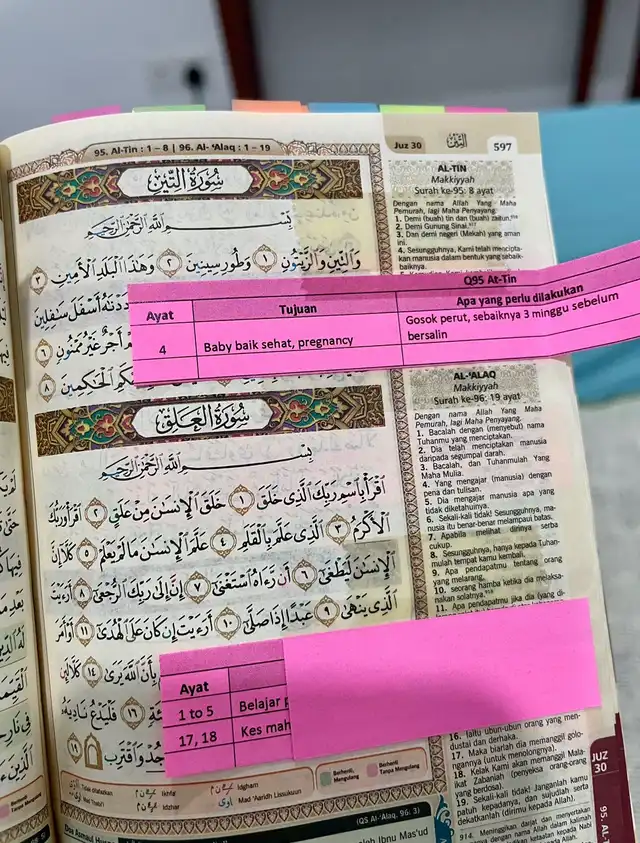 95. Al-Tin : 1 – 8 | 96. Al- 'Alaq : 1 – 19
Juz 30
597
سُورَةُ التِّينِ
بِسْمِ اللَّهِ الرَّحْمَٰنِ الرَّحِيمِ
وَالتِّينِ وَالزَّيْتُونِ ١ وَطُورِ سِينِينَ ٢ وَهَٰذَا الْبَلَدِ الْأَمِينِ ٣
أَسْفَلَ سَافِلِينَ
أَجْرٌ غَيْرُ مَمْنُونٍ ٦
الْحَاكِمِينَ ٨
AL-TIN
Makkiyyah
Surah ke-95: 8 ayat
Dengan nama Allah Yang Maha
Pemurah, lagi Maha Penyayang.
1. Demi (buah) tin dan (buah) zaitun,
2. Demi Gunung Sinai.
3. Dan demi negeri (Mekah) yang aman
ini.
4. Sesungguhnya, Kami telah mencipta-
kan manusia dalam bentuk yang sebaik-
baiknya.
Q95 At-Tin
Ayat Tujuan Apa yang perlu dilakukan
4 Baby baik sehat, pregnancy Gosok perut, sebaiknya 3 minggu sebelum
bersalin
سُورَةُ الْعَلَقِ
بِسْمِ اللَّهِ الرَّحْمَٰنِ الرَّحِيمِ
اقْرَأْ بِاسْمِ رَبِّكَ الَّذِي خَلَقَ ١ خَلَقَ الْإِنْسَانَ مِنْ عَلَقٍ ٢ اقْرَأْ وَرَبُّكَ
الْأَكْرَمُ ٣ الَّذِي عَلَّمَ بِالْقَلَمِ ٤ عَلَّمَ الْإِنْسَانَ مَا لَمْ يَعْلَمْ ٥ كَلَّا إِنَّ
الْإِنْسَانَ لَيَطْغَىٰ ٦ أَنْ رَآهُ اسْتَغْنَىٰ ٧ إِنَّ إِلَىٰ رَبِّكَ الرُّجْعَىٰ ٨ أَرَأَيْتَ
الَّذِي يَنْهَىٰ ٩ عَبْدًا إِذَا صَلَّىٰ ١٠ أَرَأَيْتَ إِنْ كَانَ عَلَى الْهُدَىٰ ١١ أَوْ أَمَرَ
بِأَنَّ اللَّهَ يَرَىٰ ١٤ كَلَّا لَئِنْ
١٦ فَلْيَدْعُ نَادِيَهُ
وَاقْتَرِبْ ١٩
AL-'ALAQ
Makkiyyah
Surah ke-96; 19 ayat
Dengan nama Allah Yang Maha
Pemurah, lagi Maha Penyayang.
1. Bacalah dengan (menyebut) nama
Tuhanmu yang menciptakan.
2. Dia telah menciptakan manusia
daripada segumpal darah.
3. Bacalah, dan Tuhanmulah Yang
Maha Mulia.
4. Yang mengajar (manusia) dengan
pena dan tulisan.
5. Dia mengajar manusia apa yang
tidak diketahuinya.
6. Sekali-kali tidak! Sesungguhnya, ma-
nusia itu benar-benar melampau batas,
7. Apabila melihat dirinya serba
cukup.
8. Sesungguhnya, hanya kepada Tuhan-
mulah tempat kamu kembali.
9. Apa pendapatmu tentang orang
yang melarang,
10. seorang hamba ketika dia melaksa-
nakan solatnya.
11. Apa pendapatmu jika dia (yang di-
Ayat
1 to 5 Belajar
17, 18 Kes mah
16. Iaitu ubun-ubun orang yang men-
dustai dan derhaka.
17. Maka biarlah dia memanggil golo-
ngannya (untuk menolongnya).
18. Kelak Kami akan memanggil Mala-
ikat Zabaniah (penyeksa orang-orang
yang berdosa).
19. Sekali-kali tidak! Janganlah kamu
patuh kepadanya, dan sujudlah serta
dekatkanlah (dirimu kepada Allah).
JUZ
30
95. AL-T
Ikhfa'
Izhar
Idgham
Mad 'Aaridh Lissukuun
Berhenti,
Mengulang
Berhenti
Tanpa Mengulang
(QS Al-'Alaq, 96: 3)
914. Meninggikan darjat dan menyertakan